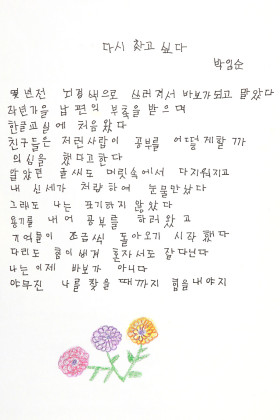 다시 찾고 싶다
박임순
몇년전 뇌경색으로 쓰러져서 바보가되고 말았다
작년가을 남편의 부축을 받으며
한글교실에 처음왔다
친구들은 저런사람이 공부를 어떻게할까
의심을 했다고한다
알았던 글씨도 머릿속에서 다지워지고
내 신세가 처량하여 눈물만났다
그래도 나는 포기하지 않았다
용기를 내어 공부를 하러왔고
기억들이 조금씩 돌아오기 시작했다
다리도 힘이생겨 혼자서도 잘다닌다
나는이제 바보가 아니다
야무진 나를찾을때까지 힘을내야지